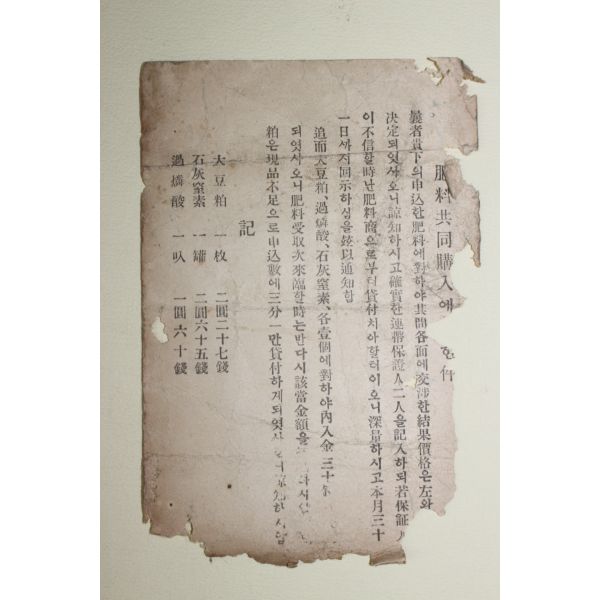 肥料共同購入에 한 件
曩者貴下의申込한肥料에對하야其間各面에交涉한結果價格은左와
决定되엿사오니諒知하시고確實한連帶保證人二人을記入하되若保證
이不信할時난肥料商으로부터貸付치아할터이오니深量하시고本月三十
一日까지回示하심을玆以通知함
追而大豆粕、過燐酸、石灰窒素、各壹個에對하야內入金三十
되엿사오니肥料受取次來臨할時는반다시該當金額을
粕은現品不足으로申込數에三分一만貸付하게되엿사
記
大豆粕 一枚 二圓二十七錢
石灰窒素 一罐 二圓六十五錢
過燐酸 一叺 一圓六十錢